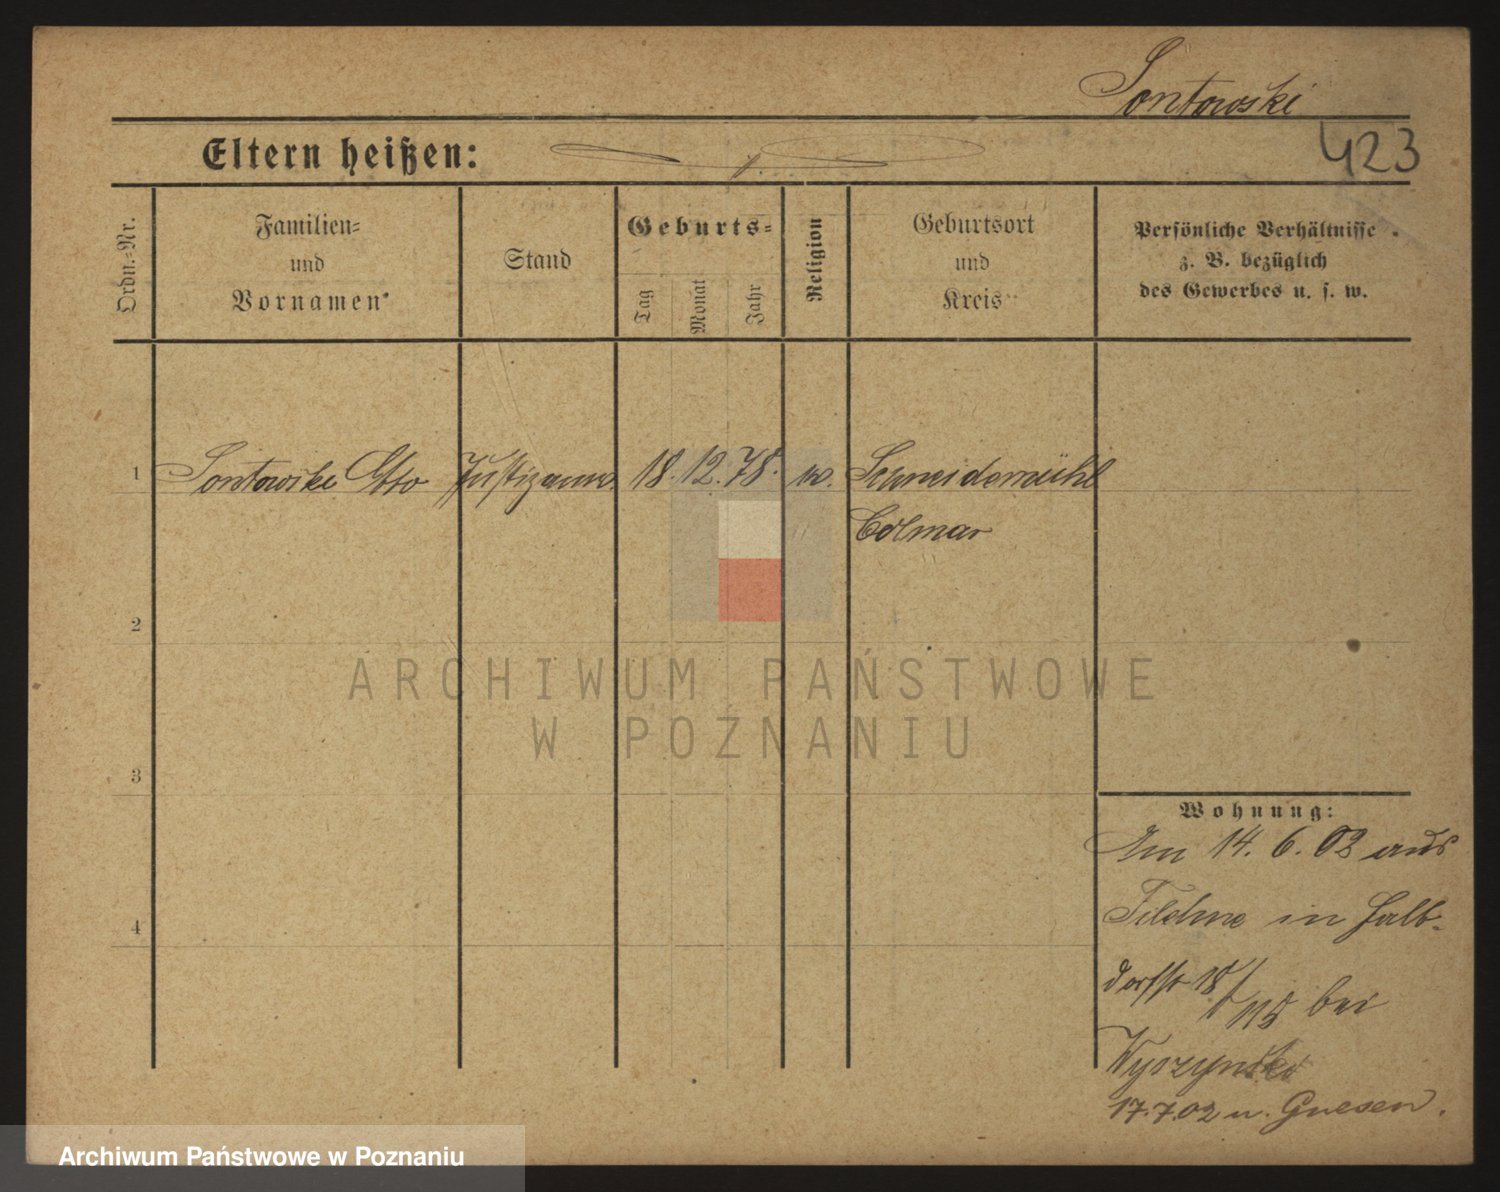 Sontowski
423
Eltern heißen:
Ordn.-Nr.
Familien-
und
Vornamen
Stand
Geburts-
Tag
Monat
Jahr
Religion
Geburtsort
und
Kreis
Persönliche Verhältnisse
z. B. bezüglich
des Gewerbes u. s. w.
1 Sontowski Otto 18. 12. 78. Schneidemühl
Colmar
2
3
4
ARCHIWUM PAŃSTWOWE
W POZNANIU
Wohnung:
Am 14. 6. 02 aus
Filehne in Halb-
dorfstr 18/
115 bei
Wyszynski
17.7.02 n. Gnesen.
Archiwum Państwowe w Poznaniu